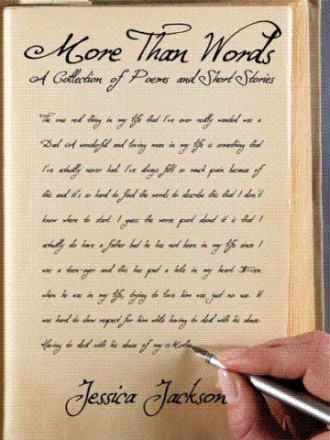 More Than Words
A Collection of Poems and Short Stories
The one real thing in my life that I've ever really wanted was a
Dad. A wonderful and loving man in my life is something that
I've actually never had. I've always felt so much pain because of
this and it's so hard to find the words to describe this that I don't
know where to start. I guess the worse part about it is that I
actually do have a father but he has not been in my life since I
was a teen-ager and this has put a hole in my heart. Even
when he was in my life, trying to love him was just no use. It
was hard to show respect for him while having to deal with his abuse.
Having to deal with his abuse of my Mother
Jessica Jackson